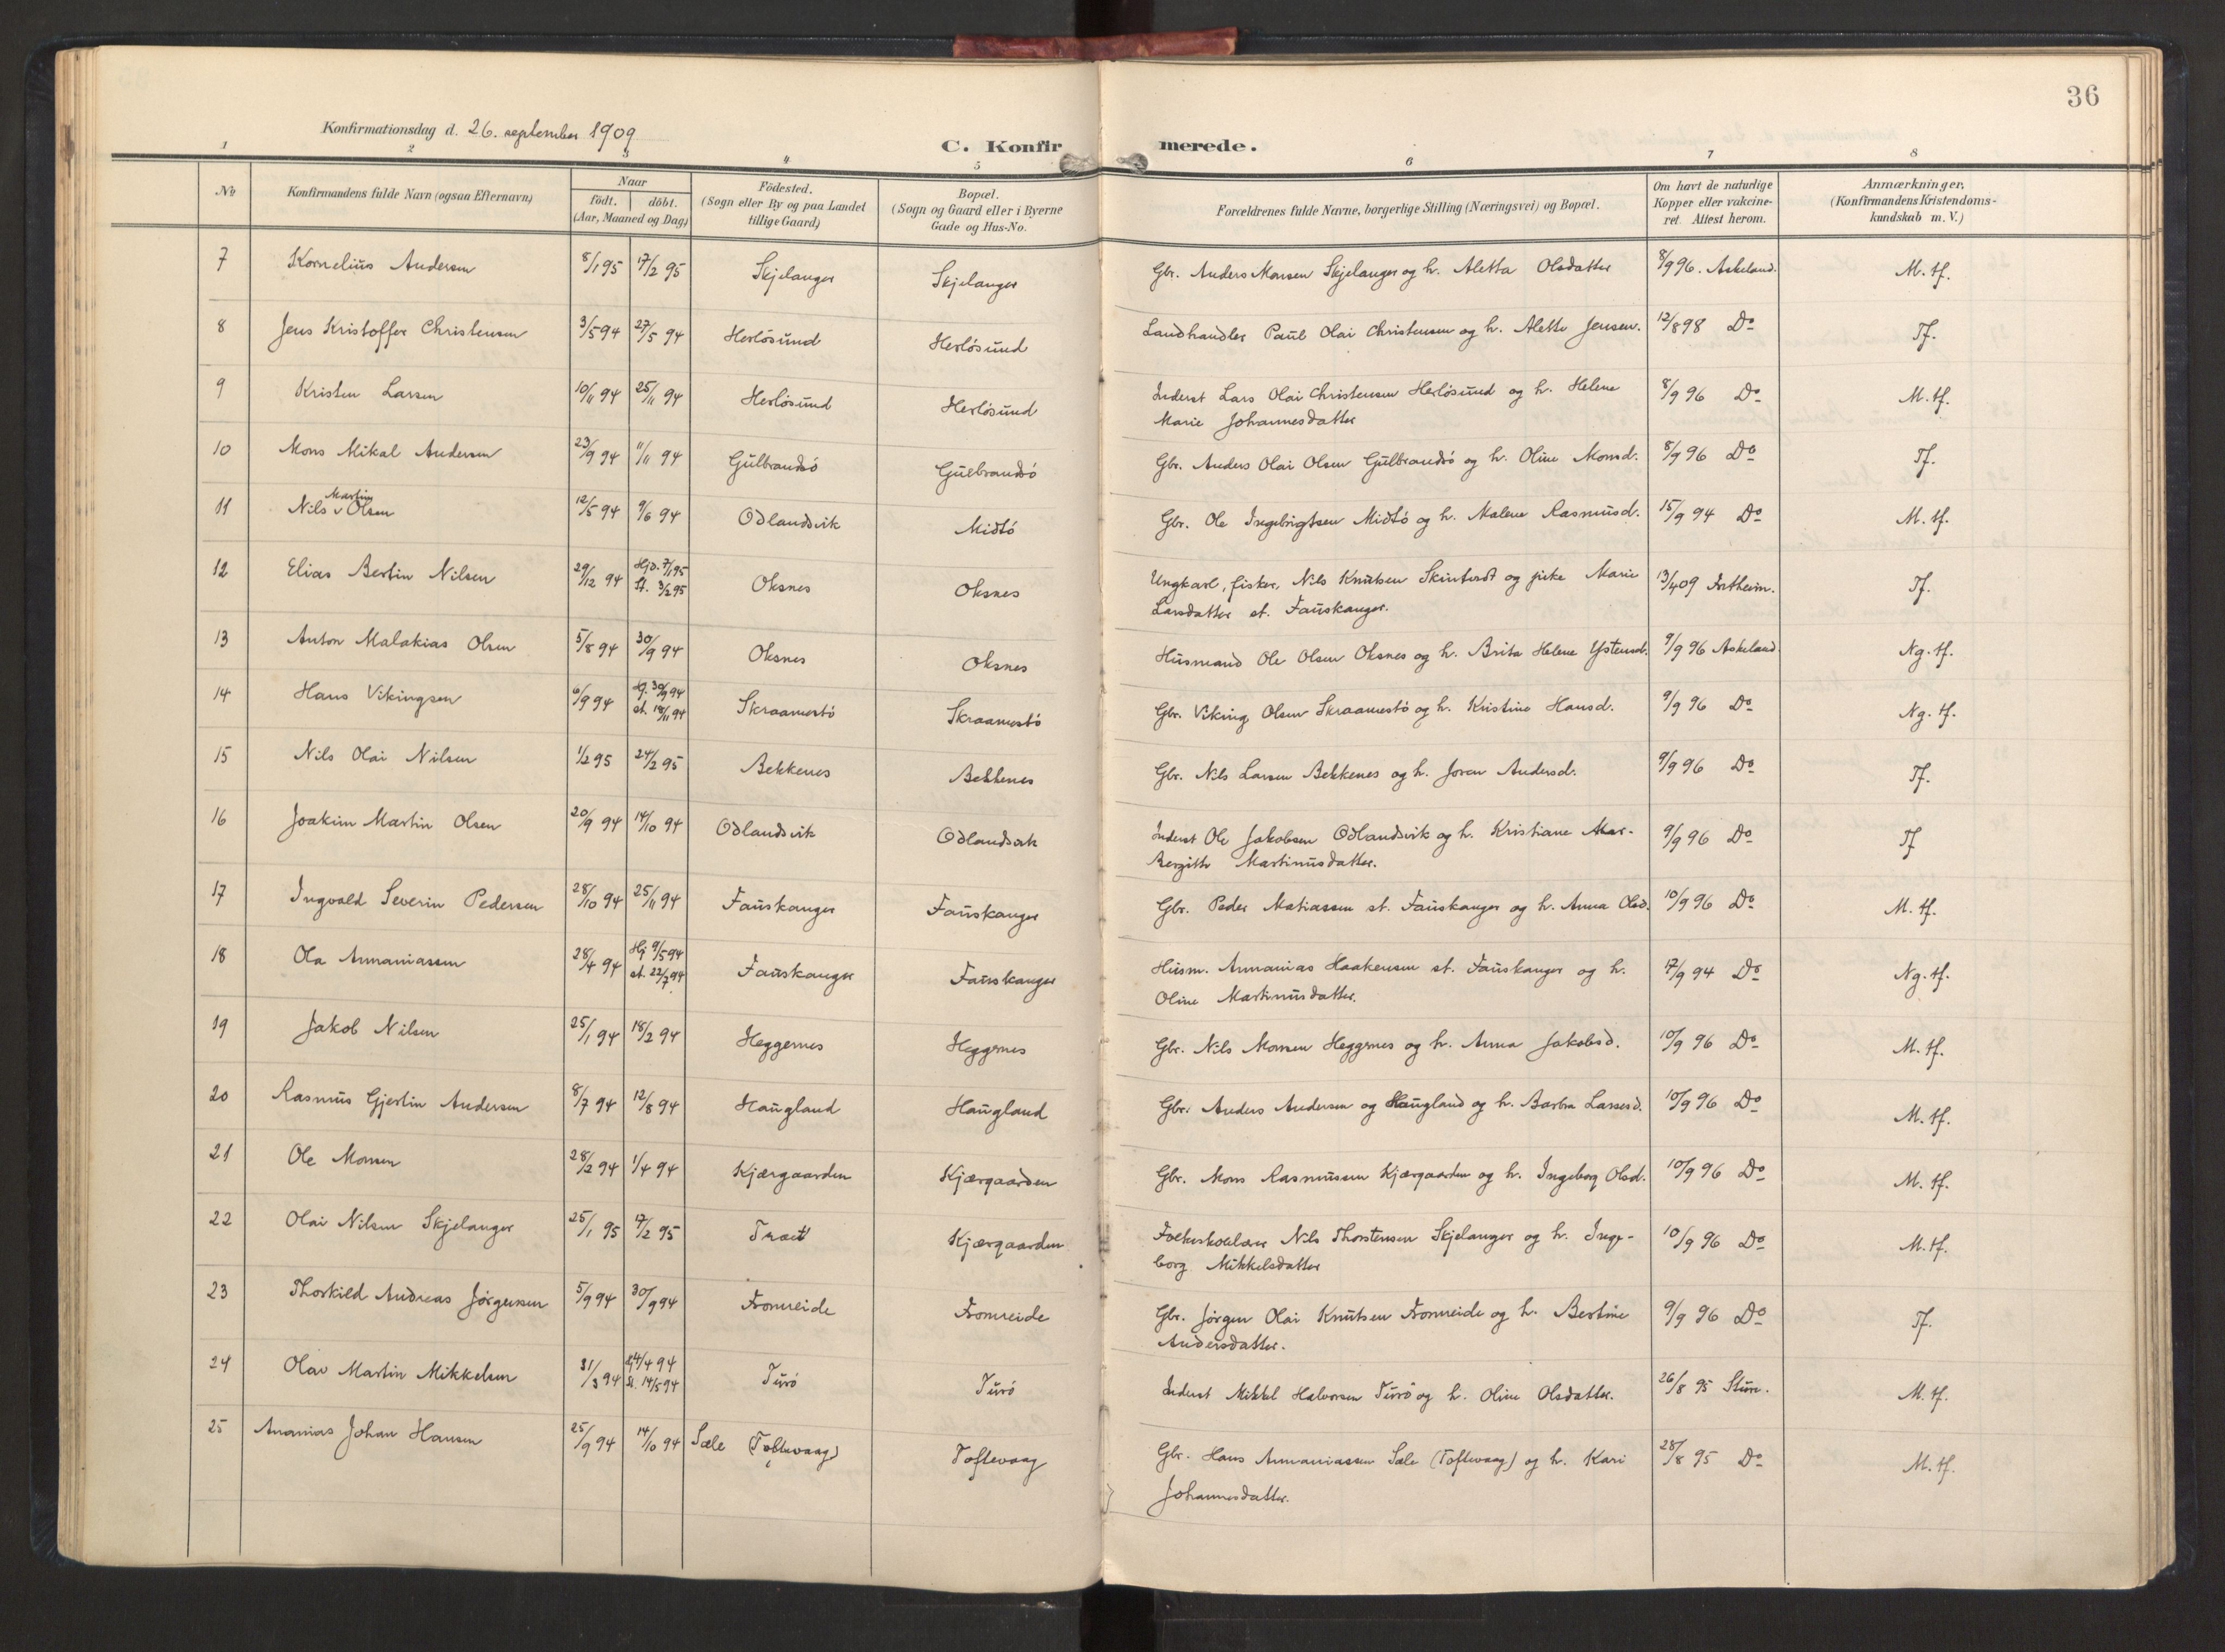 36
Konfirmationsdag d. 26. september 1909
C. Konfirmerede.
1 2 3 4 5 6 7 8
No
Konfirmandens fulde Navn (ogsaa Efternavn)
Naar
født. døbt.
(Aar, Maaned og Dag)
Födested.
(Sogn eller By og paa Landet
tillige Gaard)
Bopæl.
(Sogn og Gaard eller i Byerne
Gade og Hus-No.
Forældrenes fulde Navne, borgerlige Stilling (Næringsvei) og Bopæl.
Om havt de naturlige
Kopper eller vakcine-
ret. Attest herom.
Anmærkninger,
(Konfirmandens Kristendoms-
kundskab m. V.)
7 Kornelius Andersen 8/1 95 17/2 95 Skjelanger Skjelanger Gbr. Anders Monsen Skjelanger og h. Aletta Olsdatter 8/9 96. Askeland. M. tf.
8 Jens Kristoffer Christensen 3/5 94 27/5 94 Herlösund Herlösund Landhandler Paul Olai Christensen og h. Alette Jensen. 12/8 98 Do Tf.
9 Kristen Larsen 10/11 94 25/11 94 Herlösund Herlösund Inderst Lars Olai Christensen Herlösund og h. Helene 8/9 96 Do M. tf.
Marie Johannesdatter
10 Mons Mikal Andersen 23/9 94 11/11 94 Gulbrandsö Gulbrandsö Gbr. Anders Olai Olsen Gulbrandsö og h. Oline Monsd. 8/9 96 Do Tf.
Martin
11 Nils v Olsen 12/5 94 9/6 94 Odlandsvik Midtö Gbr. Ole Ingebrigtsen Midtö og h. Malene Rasmusd. 15/9 94 Do M. tf.
12 Elias Bertin Nilsen 29/12 94 Hjd. 7/1 95 Oksnes Oksnes Ungkarl, fisker, Nils Knutsen Skintveit og pike Marie 13/4 09 Tf.
St. 3/2 95 Larsdatter st. Fauskanger.
13 Anton Malakias Olsen 5/8 94 30/9 94 Oksnes Oksnes Husmand Ole Olsen Oksnes og h. Brita Helene Ystensd. 9/9 96 Askeland. Ng. tf.
14 Hans Vikingsen 6/9 94 Hj. 30/9 94 Skraamestö Skraamestö Gbr. Viking Olsen Skraamestö og h. Kristine Hansd. 9/9 96 Do Ng. tf.
st. 18/11 94
15 Nils Olai Nilsen 1/2 95 24/2 95 Bekkenes Bekkenes Gbr. Nils Larsen Bekkenes og h. Joren Andersd. 9/9 96 Do Tf.
16 Joakim Martin Olsen 20/9 94 14/10 94 Odlandsvik Odlandsvik Inderst Ole Jakobsen Odlandsvik og h. Kristiane 9/9 96 Do Tf
Bergithe Martinusdatter.
17 Ingvald Severin Pedersen 28/10 94 25/11 94 Fauskanger Fauskanger Gbr. Peder Matiassen st. Fauskanger og h. Anna Olsd. 10/9 96 Do M. tf.
18 Ola Annaniassen 28/4 94 Hj 9/5 94 Fauskanger Fauskanger Husm. Annanias Haakensen st. Fauskanger og h. 17/9 94 Do Ng. tf.
st. 22/7 94 Oline Martinusdatter.
19 Jakob Nilsen 25/1 94 18/2 94 Heggernes Heggernes Gbr. Nils Monsen Heggernes og h. Anna Jakobsd. 10/9 96 Do M. tf.
20 Rasmus Gjertin Andersen 8/7 94 12/8 94 Haugland Haugland Gbr. Anders Andersen og Haugland og h. Barbra Larsesd. 10/9 96 Do M. tf.
21 Ole Monsen 28/2 94 1/4 94 Kjærgaarden Kjærgaarden Gbr. Mons Rasmussen Kjærgaarden og h. Ingeborg Olsd. 10/9 96 Do M. tf.
22 Olai Nilsen Skjelanger 25/1 95 17/2 95 Træt Kjærgaarden Folkeskolelærer Nils Thorstensen Skjelanger og h. Inge- 10/9 96 Do M. tf.
borg Mikkelsdatter
23 Thorkild Andreas Jörgensen 5/9 94 30/9 94 Fromreide Fromreide Gbr. Jörgen Olai Knutsen Fromreide og h. Bertine 9/9 96 Do Tf.
Andersdatter.
24 Olav Martin Mikkelsen 31/3 94 4/4 94 Turö Turö Inderst Mikkel Halvorsen Turö og h. Oline Olsdatter. 26/8 95 Sture. M. tf.
St. 14/5 94
25 Ananias Johan Hansen 25/9 94 14/10 94 Sæle (Toftevaag) Toftevaag Gbr. Hans Annaniassen Sæle (Toftevaag) og h. Kari 28/8 95 Do M. tf.
Johannesdatter.